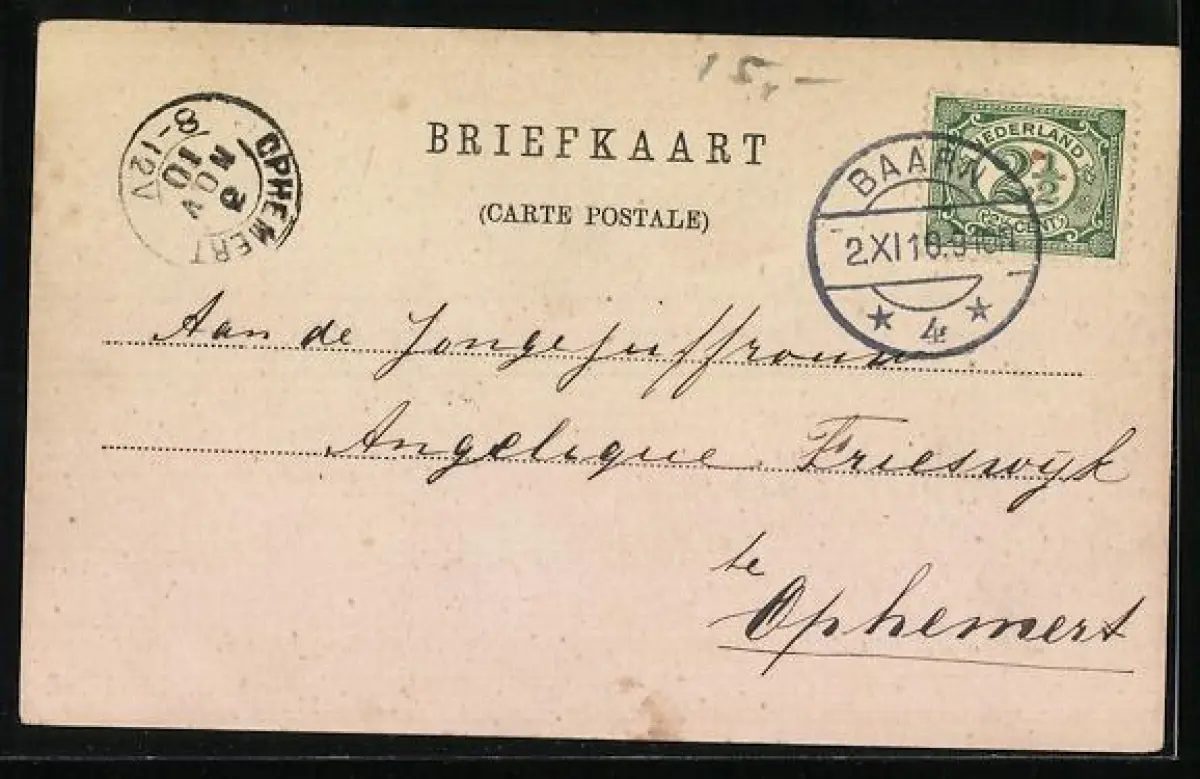 15,-
BRIEFKAART
(CARTE POSTALE)
OPHEMERT
8-12V
2 NOV 10
NEDERLAND
2½
CENT
BAARN
2.XI.10.
4
Aan de Jongejuffrouw
Angelique Frieswyk
te
Ophemert